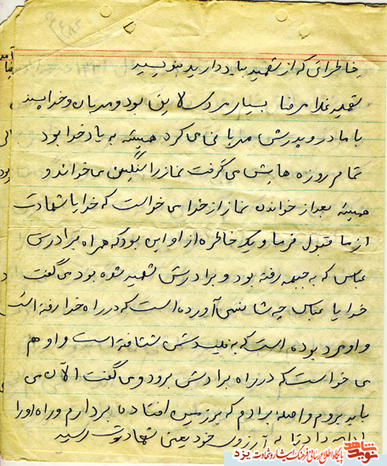 خاطراتی که از شهید بیاد دارید بنویسید
شهید غلامرضا بسیار مردی دلاور بود و مهربان و خداپسند
با مادر و پدرش مهربانی می کرد همیشه به یاد خدا بود
تمام روزه هایش می گرفت نماز را سنگین می خواند و
همیشه بعد از خواندن نماز از خدا می خواست که خدایا شهادت
از ما قبول فرما و یک خاطره از او این بود که همراه برادرش
عباس که به جبهه رفته بود و برادرش شهید شده بود می گفت
خدایا عباس چه شانسی آورده است که در راه خدا رفته است
و او مرد بوده است که به شتافته است و او هم
می خواست که در راه برادرش برود و می گفت الآن می
باید بروم و اصلحه برادرم که بر زمین افتاده بردارم و راه او را
ادامه داد تا به آرزوی خود یعنی شهادت رسید
نوید شاهد
پایگاه اطلاع رسانی فرهنگ ایثار و شهادت یزد